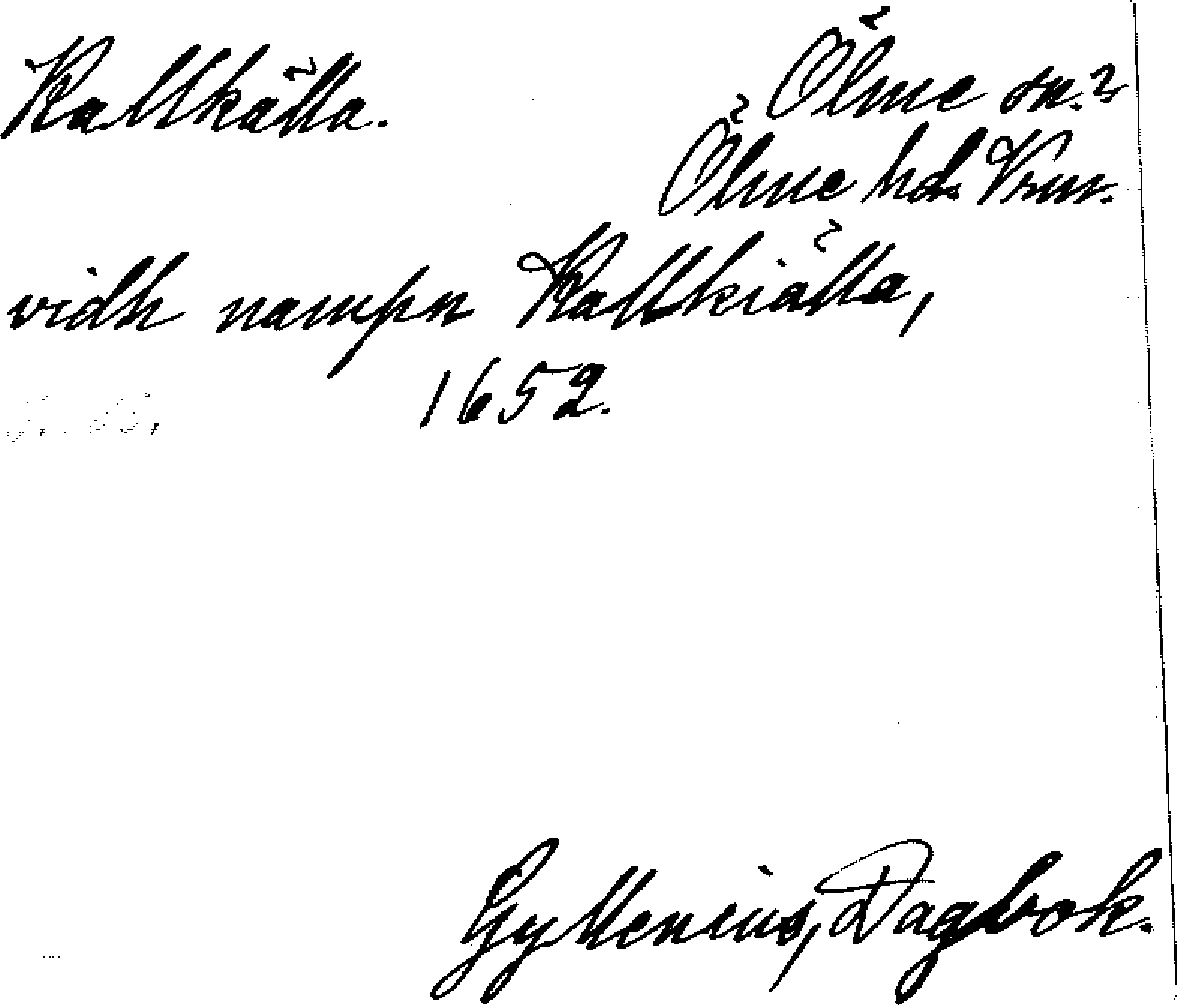 Kallkälla.
Ölme sn.?
Ölme hd. Vrm.
vidh nampn Kallkiälla,
1652.
Gyllenius, Dagbok.